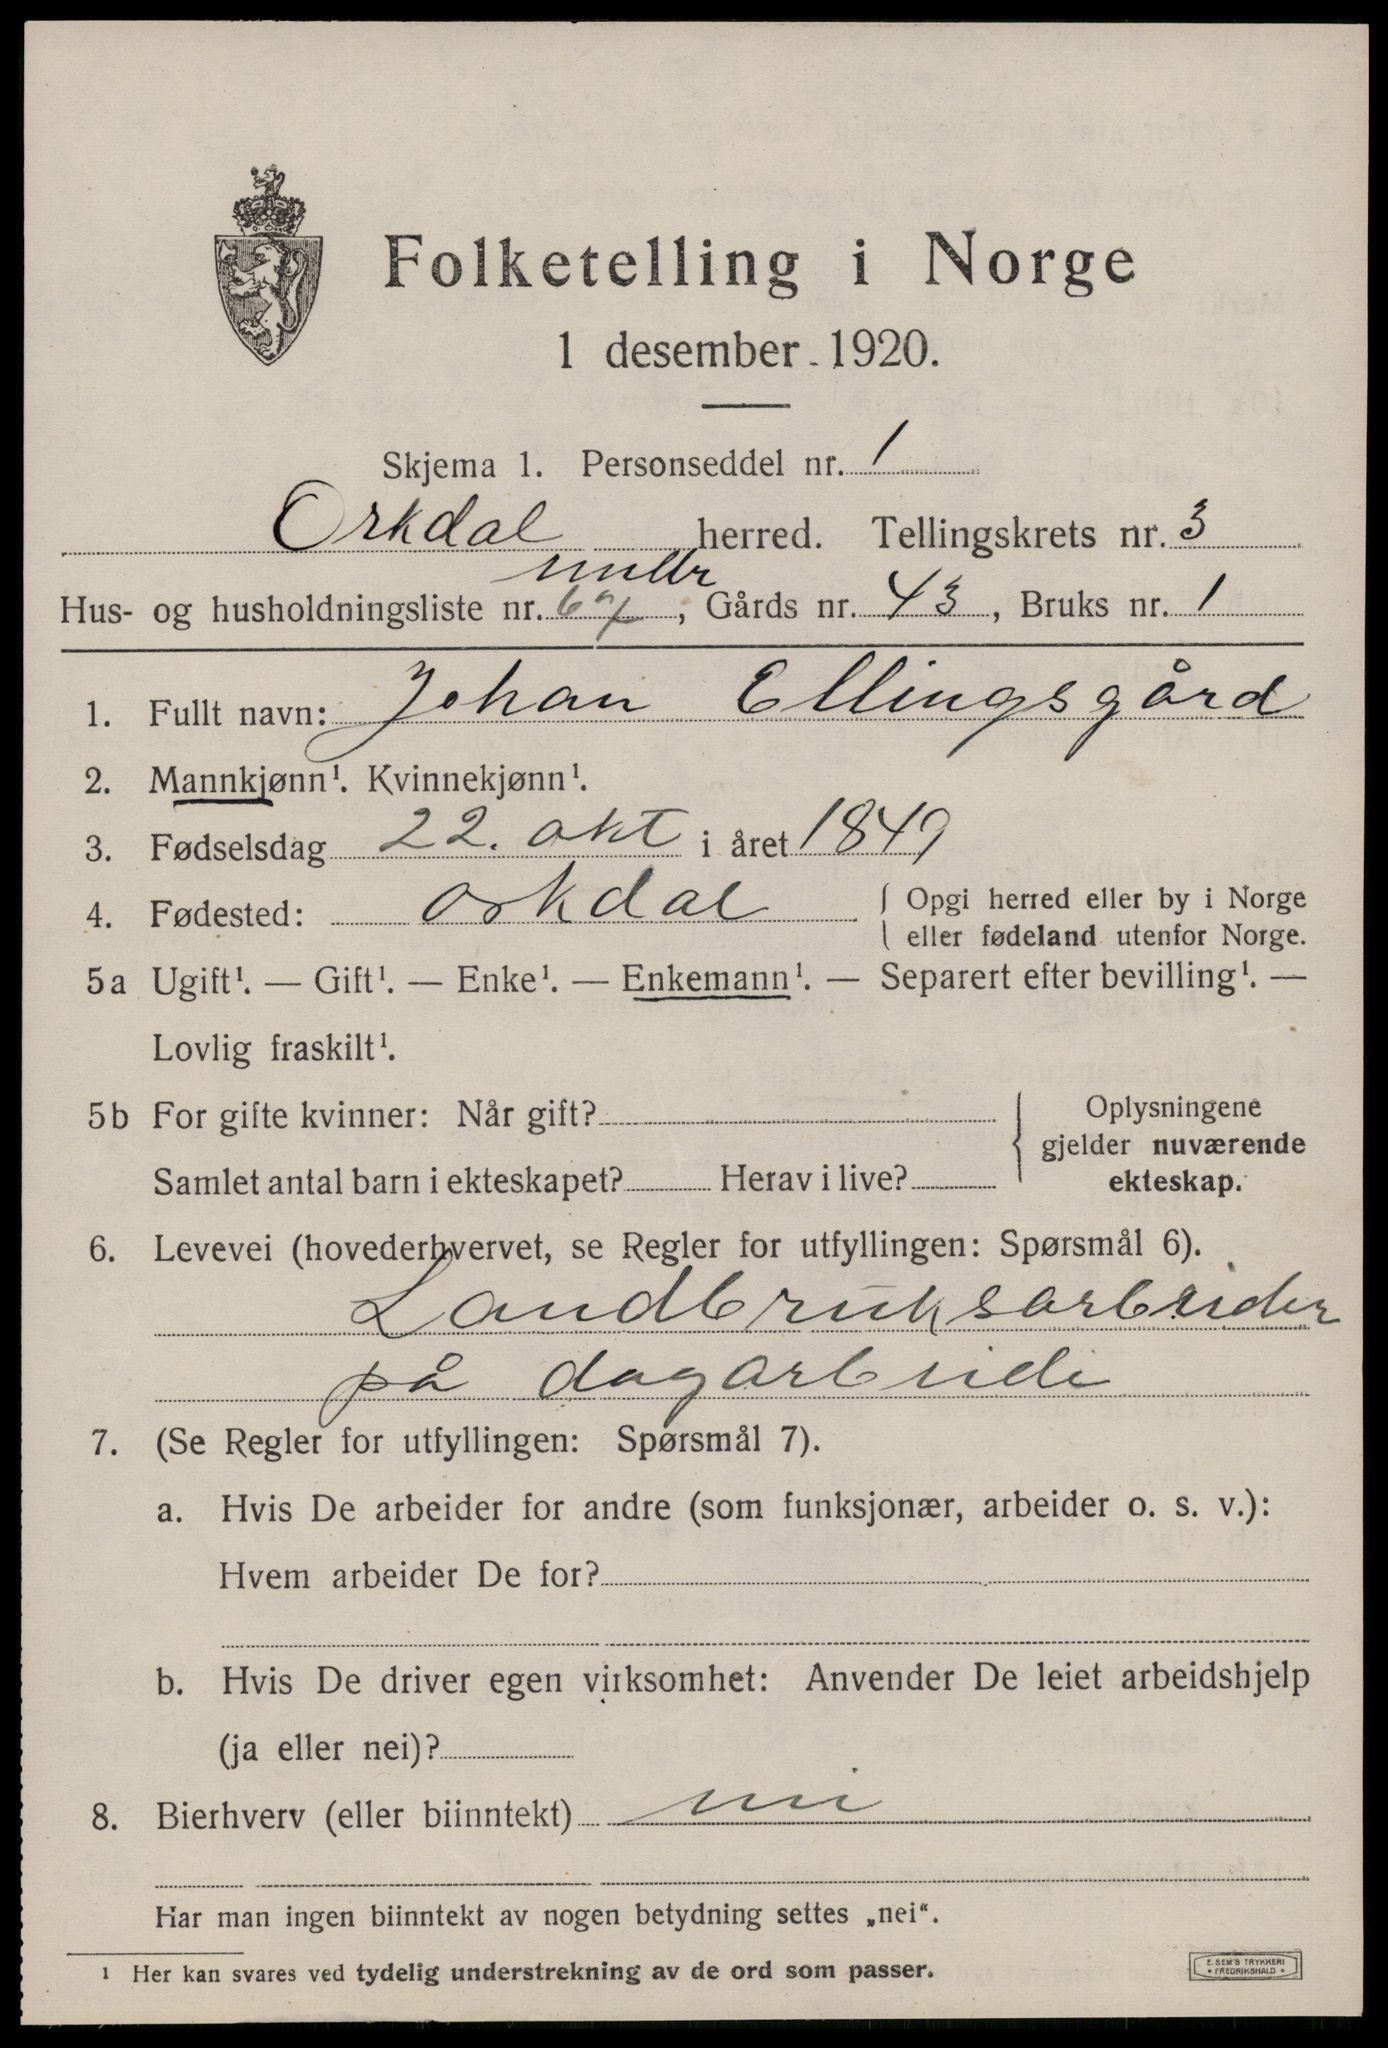 Folketelling i Norge
1 desember 1920.
Skjema 1. Personseddel nr. 1
Orkdal herred. Tellingskrets nr. 3
Hus- og husholdningsliste nr. , Gårds nr. 43, Bruks nr. 1
1. Fullt navn: Johan Ellingsgård
2. Mannkjønn¹. Kvinnekjønn¹.
3. Fødselsdag 22. okt i året 1849
4. Fødested: Orkdal { Opgi herred eller by i Norge
eller fødeland utenfor Norge.
5a Ugift¹. — Gift¹. — Enke¹. — Enkemann¹. — Separert efter bevilling¹. —
Lovlig fraskilt¹.
5b For gifte kvinner: Når gift? { Oplysningene
gjelder nuværende
Samlet antal barn i ekteskapet? Herav i live? ekteskap.
6. Levevei (hovederhvervet, se Regler for utfyllingen: Spørsmål 6).
Landbruksarbeider
på dagarbeide
7. (Se Regler for utfyllingen: Spørsmål 7).
a. Hvis De arbeider for andre (som funksjonær, arbeider o. s. v.):
Hvem arbeider De for?
b. Hvis De driver egen virksomhet: Anvender De leiet arbeidshjelp
(ja eller nei)?
8. Bierhverv (eller biinntekt) nei
Har man ingen biinntekt av nogen betydning settes „nei“.
¹ Her kan svares ved tydelig understrekning av de ord som passer.
E. SEM'S TRYKKERI
• FREDRIKSHALD •